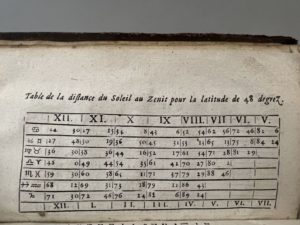 Table de la distance du Soleil au Zenit pour la latitude de 48 degrez.
XII. XI. X IX VIII. VII VI. V.
♋ 30 27 15 34 8 43 6 52 54 62 56 72 46 82 6
♊ ♌ 27 48 30 36 50 45 55 75 8 84 24
♉ ♍ 36 30 38 36 44 52 17 61 54 71 28 81 29
♈ ♎ 48 0 49 44 54 35 61 41 70 27 80 2
♓ ♏ 59 30 60 58 65 3 71 37 79 29 88 46
♒ ♐ 68 12 69 31 73 18 79 11 86 43
♑ 71 30 72 46 76 24 82 6 89 24
XII. I. II. III. IV. V. VI. VII.